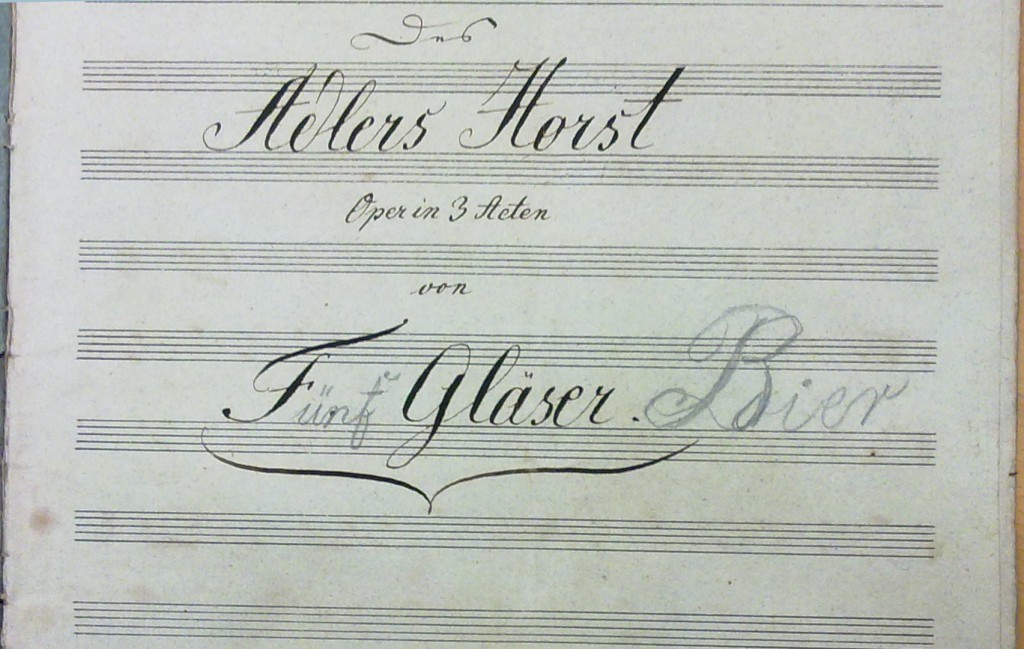 Des
Adlers Horst
Oper in 3 Acten
von
Fünf Gläser. Bier